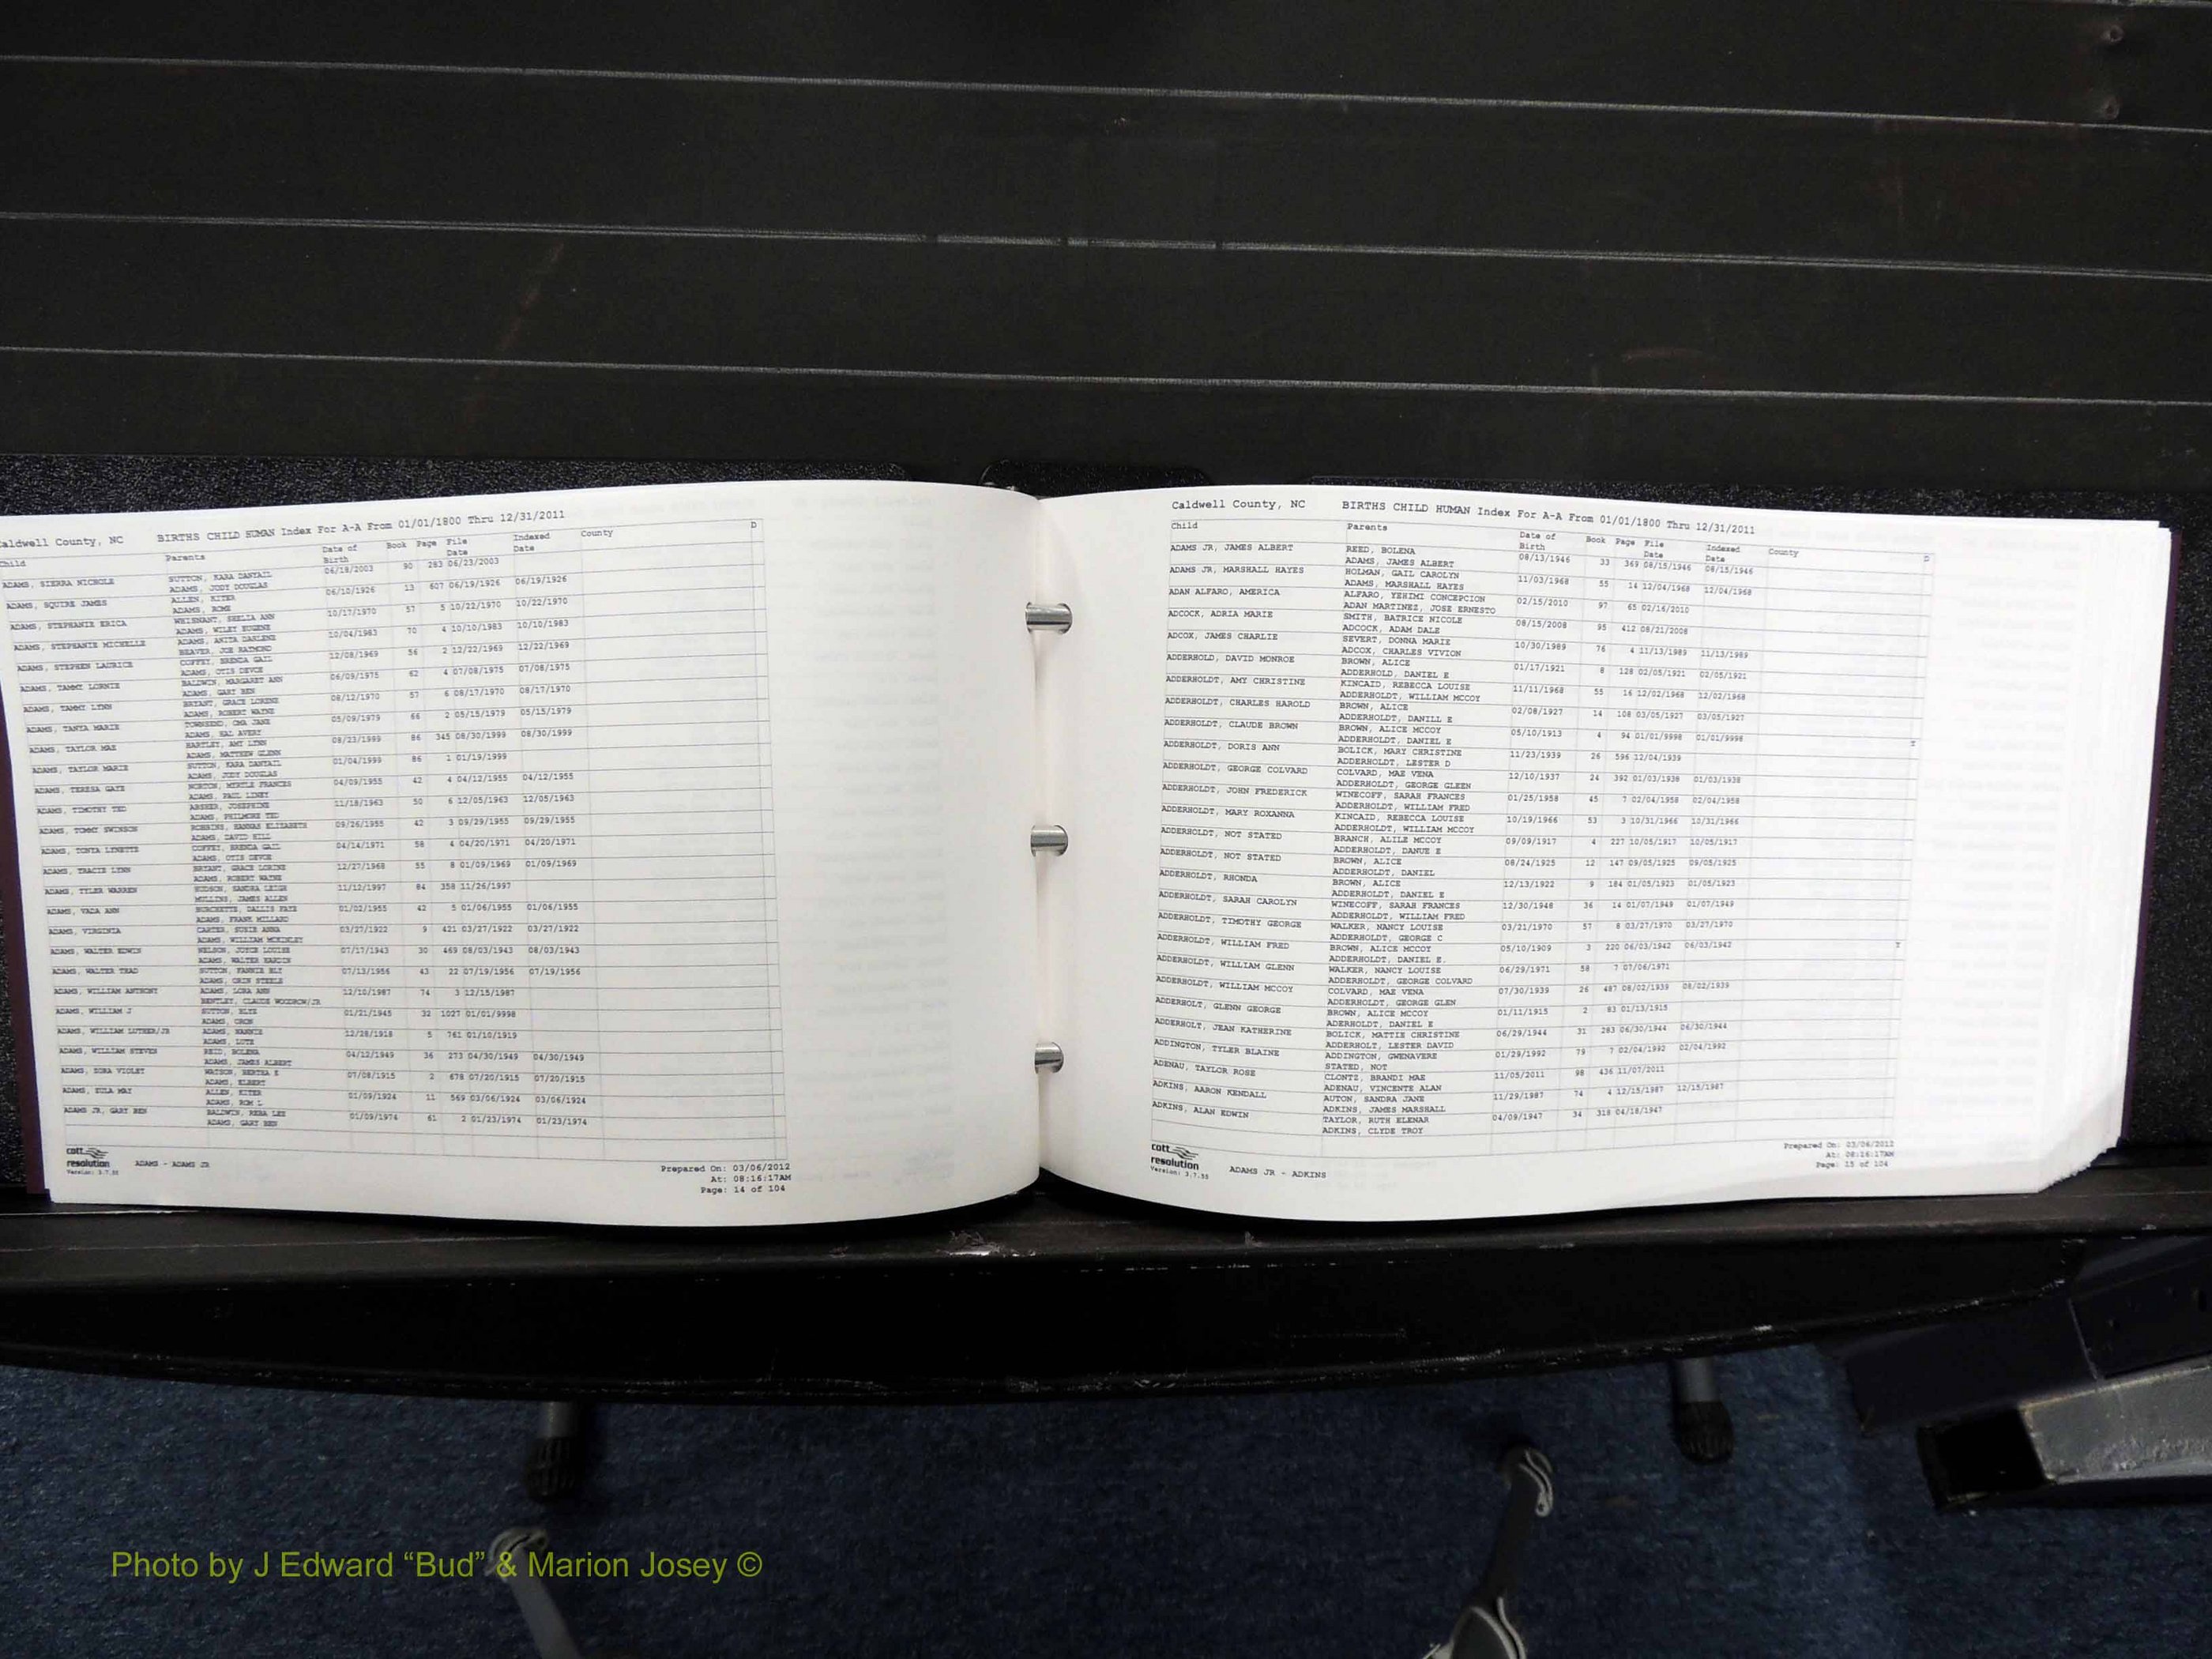 Caldwell County, NC BIRTHS CHILD HUMAN Index For A-A From 01/01/1800 Thru 12/31/2011
Child Parents Date of Birth Book Page File Date Indexed Date County D
ADAMS, SIERRA NICHOLE SUTTON, KARA DANYAIL 06/18/2003 90 283 06/23/2003
ADAMS, JODY DOUGLAS
ADAMS, SQUIRE JAMES ALLEN, KITER 06/10/1926 13 607 06/19/1926 06/19/1926
ADAMS, ROME
ADAMS, STEPHANIE ERICA WHISNANT, SHELIA ANN 10/17/1970 57 5 10/22/1970 10/22/1970
ADAMS, WILEY EUGENE
ADAMS, STEPHANIE MICHELLE ADAMS, ANITA DARLENE 10/04/1983 70 4 10/10/1983 10/10/1983
BEAVER, JOE RAYMOND
ADAMS, STEPHEN LAURICE COFFEY, BRENDA GAIL 12/08/1969 56 2 12/22/1969 12/22/1969
ADAMS, OTIS DEVOE
ADAMS, TAMMY LORNIE BALDWIN, MARGARET ANN 06/09/1975 62 4 07/08/1975 07/08/1975
ADAMS, GARY BEN
ADAMS, TAMMY LYNN BRYANT, GRACE LORENE 08/12/1970 57 6 08/17/1970 08/17/1970
ADAMS, ROBERT WAYNE
ADAMS, TANYA MARIE TOWNSEND, OMA JANE 05/09/1979 66 2 05/15/1979 05/15/1979
ADAMS, HAL AVERY
ADAMS, TAYLOR MAE HARTLEY, AMY LYNN 08/23/1999 86 345 08/30/1999 08/30/1999
ADAMS, MATTHEW GLENN
ADAMS, TAYLOR MARIE SUTTON, KARA DANYAIL 01/04/1999 86 1 01/19/1999
ADAMS, JODY DOUGLAS
ADAMS, TERESA GAYE NORTON, MYRTLE FRANCES 04/09/1955 42 4 04/12/1955 04/12/1955
ADAMS, PAUL LINEY
ADAMS, TIMOTHY TED ARSHER, JOSEPHINE 11/18/1963 50 6 12/05/1963 12/05/1963
ADAMS, PHILMORE TED
ADAMS, TOMMY SWINSON ROBBINS, HANNAS ELIZABETH 09/26/1955 42 3 09/29/1955 09/29/1955
ADAMS, DAVID HILL
ADAMS, TONYA LYNETTE COFFEY, BRENDA GAIL 04/14/1971 58 4 04/20/1971 04/20/1971
ADAMS, OTIS DEVOE
ADAMS, TRACIE LYNN BRYANT, GRACE LORINE 12/27/1968 55 8 01/09/1969 01/09/1969
ADAMS, ROBERT WAYNE
ADAMS, TYLER WARREN HUDSON, SANDRA LEIGH 11/12/1997 84 358 11/26/1997
MULLINS, JAMES ALLEN
ADAMS, VADA ANN BURCHETTE, DALLIS FAYE 01/02/1955 42 5 01/06/1955 01/06/1955
ADAMS, FRANK MILLARD
ADAMS, VIRGINIA CARTER, SUSIE ANNA 03/27/1922 9 421 03/27/1922 03/27/1922
ADAMS, WILLIAM MCKINLEY
ADAMS, WALTER EDWIN NELSON, JOYCE LOUISE 07/17/1943 30 469 08/03/1943 08/03/1943
ADAMS, WALTER HARDIN
ADAMS, WALTER THAD SUTTON, FANNIE ELY 07/13/1956 43 22 07/19/1956 07/19/1956
ADAMS, ORIN STEELE
ADAMS, WILLIAM ANTHONY ADAMS, LORA ANN 12/10/1987 74 3 12/15/1987
BENTLEY, CLAUDE WOODROW/JR
ADAMS, WILLIAM J SUTTON, ELYE 01/21/1945 32 1027 01/01/9998
ADAMS, ORON
ADAMS, WILLIAM LUTHER/JR ADAMS, NANNIE 12/28/1918 5 761 01/10/1919
ADAMS, LUTE
ADAMS, WILLIAM STEVEN REID, BOLENA 04/12/1949 36 273 04/30/1949 04/30/1949
ADAMS, JAMES ALBERT
ADAMS, ZORA VIOLET WATSON, BERTHA E 07/08/1915 2 678 07/20/1915 07/20/1915
ADAMS, ELBERT
ADAMS, ZULA MAY ALLEN, KITER 01/09/1924 11 569 03/06/1924 03/06/1924
ADAMS, ROM L
ADAMS JR, GARY BEN BALDWIN, REBA LEE 01/09/1974 61 2 01/23/1974 01/23/1974
ADAMS, GARY BEN
cott
resolution
Version: 3.7.55
ADAMS - ADAMS JR
Prepared On: 03/06/2012
At: 08:16:17AM
Page: 14 of 104
Caldwell County, NC BIRTHS CHILD HUMAN Index For A-A From 01/01/1800 Thru 12/31/2011
Child Parents Date of Birth Book Page File Date Indexed Date County D
ADAMS JR, JAMES ALBERT REED, BOLENA 08/13/1946 33 369 08/15/1946 08/15/1946
ADAMS, JAMES ALBERT
ADAMS JR, MARSHALL HAYES HOLMAN, GAIL CAROLYN 11/03/1968 55 14 12/04/1968 12/04/1968
ADAMS, MARSHALL HAYES
ADAN ALFARO, AMERICA ALFARO, YEHIMI CONCEPCION 02/15/2010 97 65 02/16/2010
ADAN MARTINEZ, JOSE ERNESTO
ADCOCK, ADRIA MARIE SMITH, BATRICE NICOLE 08/15/2008 95 412 08/21/2008
ADCOCK, ADAM DALE
ADCOX, JAMES CHARLIE SEVERT, DONNA MARIE 10/30/1989 76 4 11/13/1989 11/13/1989
ADCOX, CHARLES VIVION
ADDERHOLD, DAVID MONROE BROWN, ALICE 01/17/1921 8 128 02/05/1921 02/05/1921
ADDERHOLD, DANIEL E
ADDERHOLDT, AMY CHRISTINE KINCAID, REBECCA LOUISE 11/11/1968 55 16 12/02/1968 12/02/1968
ADDERHOLDT, WILLIAM MCCOY
ADDERHOLDT, CHARLES HAROLD BROWN, ALICE 02/08/1927 14 108 03/05/1927 03/05/1927
ADDERHOLDT, DANILL E
ADDERHOLDT, CLAUDE BROWN BROWN, ALICE MCCOY 05/10/1913 4 94 01/01/9998 01/01/9998 Y
ADDERHOLDT, DANIEL E
ADDERHOLDT, DORIS ANN BOLICK, MARY CHRISTINE 11/23/1939 26 596 12/04/1939
ADDERHOLDT, LESTER D
ADDERHOLDT, GEORGE COLVARD COLVARD, MAE VENA 12/10/1937 24 392 01/03/1938 01/03/1938
ADDERHOLDT, GEORGE GLEEN
ADDERHOLDT, JOHN FREDERICK WINECOFF, SARAH FRANCES 01/25/1958 45 7 02/04/1958 02/04/1958
ADDERHOLDT, WILLIAM FRED
ADDERHOLDT, MARY ROXANNA KINCAID, REBECCA LOUISE 10/19/1966 53 3 10/31/1966 10/31/1966
ADDERHOLDT, WILLIAM MCCOY
ADDERHOLDT, NOT STATED BRANCH, ALILE MCCOY 09/09/1917 4 227 10/05/1917 10/05/1917
ADDERHOLDT, DANUE E
ADDERHOLDT, NOT STATED BROWN, ALICE 08/24/1925 12 147 09/05/1925 09/05/1925
ADDERHOLDT, DANIEL
ADDERHOLDT, RHONDA BROWN, ALICE 12/13/1922 9 184 01/05/1923 01/05/1923
ADDERHOLDT, DANIEL E
ADDERHOLDT, SARAH CAROLYN WINECOFF, SARAH FRANCES 12/30/1948 36 14 01/07/1949 01/07/1949
ADDERHOLDT, WILLIAM FRED
ADDERHOLDT, TIMOTHY GEORGE WALKER, NANCY LOUISE 03/21/1970 57 8 03/27/1970 03/27/1970
ADDERHOLDT, GEORGE C
ADDERHOLDT, WILLIAM FRED BROWN, ALICE MCCOY 05/10/1909 3 220 06/03/1942 06/03/1942 Y
ADDERHOLDT, DANIEL E.
ADDERHOLDT, WILLIAM GLENN WALKER, NANCY LOUISE 06/29/1971 58 7 07/06/1971
ADDERHOLDT, GEORGE COLVARD
ADDERHOLDT, WILLIAM MCCOY COLVARD, MAE VENA 07/30/1939 26 487 08/02/1939 08/02/1939
ADDERHOLDT, GEORGE GLEN
ADDERHOLT, GLENN GEORGE BROWN, ALICE MCCOY 01/11/1915 2 83 01/13/1915
ADERHOLDT, DANIEL E
ADDERHOLT, JEAN KATHERINE BOLICK, MATTIE CHRISTINE 06/29/1944 31 283 06/30/1944 06/30/1944
ADDERHOLT, LESTER DAVID
ADDINGTON, TYLER BLAINE ADDINGTON, GWENAVERE 01/29/1992 79 7 02/04/1992 02/04/1992
STATED, NOT
ADENAU, TAYLOR ROSE CLONTZ, BRANDI MAE 11/05/2011 98 436 11/07/2011
ADENAU, VINCENTE ALAN
ADKINS, AARON KENDALL AUTON, SANDRA JANE 11/29/1987 74 4 12/15/1987 12/15/1987
ADKINS, JAMES MARSHALL
ADKINS, ALAN EDWIN TAYLOR, RUTH ELENAR 04/09/1947 34 318 04/18/1947
ADKINS, CLYDE TROY
cott
resolution
Version: 3.7.55
ADAMS JR - ADKINS
Prepared On: 03/06/2012
At: 08:16:17AM
Page: 15 of 104
Photo by J Edward “Bud” & Marion Josey ©